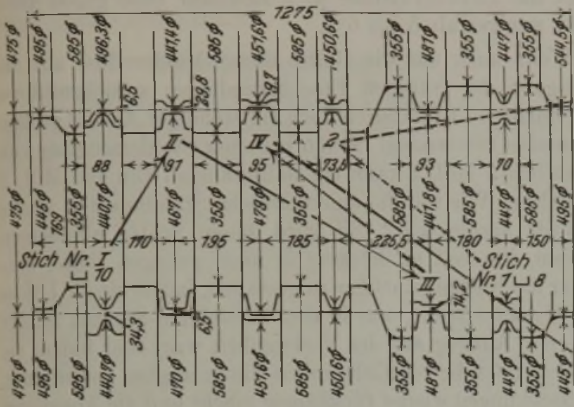 1275
475ϕ 495ϕ 585ϕ 496,3ϕ 441,4ϕ 585ϕ 451,6ϕ 585ϕ 450,6ϕ 355ϕ 481ϕ 355ϕ 447ϕ 355ϕ 544,5ϕ
6,6 29,8 9,7
II IV 2
88 91 95 73,5 93 70
475ϕ 445ϕ 769 355ϕ 440,7ϕ 467ϕ 355ϕ 478ϕ 355ϕ 585ϕ 441,8ϕ 585ϕ 447ϕ 585ϕ 495ϕ
110 195 185 225,5 180 150
Stich Nr. I
⊔ 10
III
Stich
Nr. 1 ⊔ 8
34,3 6,5 14,2
475ϕ 495ϕ 585ϕ 440,7ϕ 470ϕ 585ϕ 451,6ϕ 585ϕ 450,6ϕ 355ϕ 487ϕ 355ϕ 447ϕ 355ϕ 445ϕ